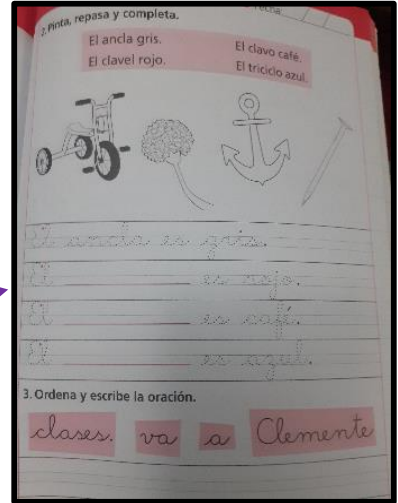 Fecha:
2. Pinta, repasa y completa.
El ancla gris. El clavo café.
El clavel rojo. El triciclo azul.
El ancla es gris.
El ____________ es rojo.
El ____________ es café.
El ____________ es azul.
3. Ordena y escribe la oración.
clases. va a Clemente